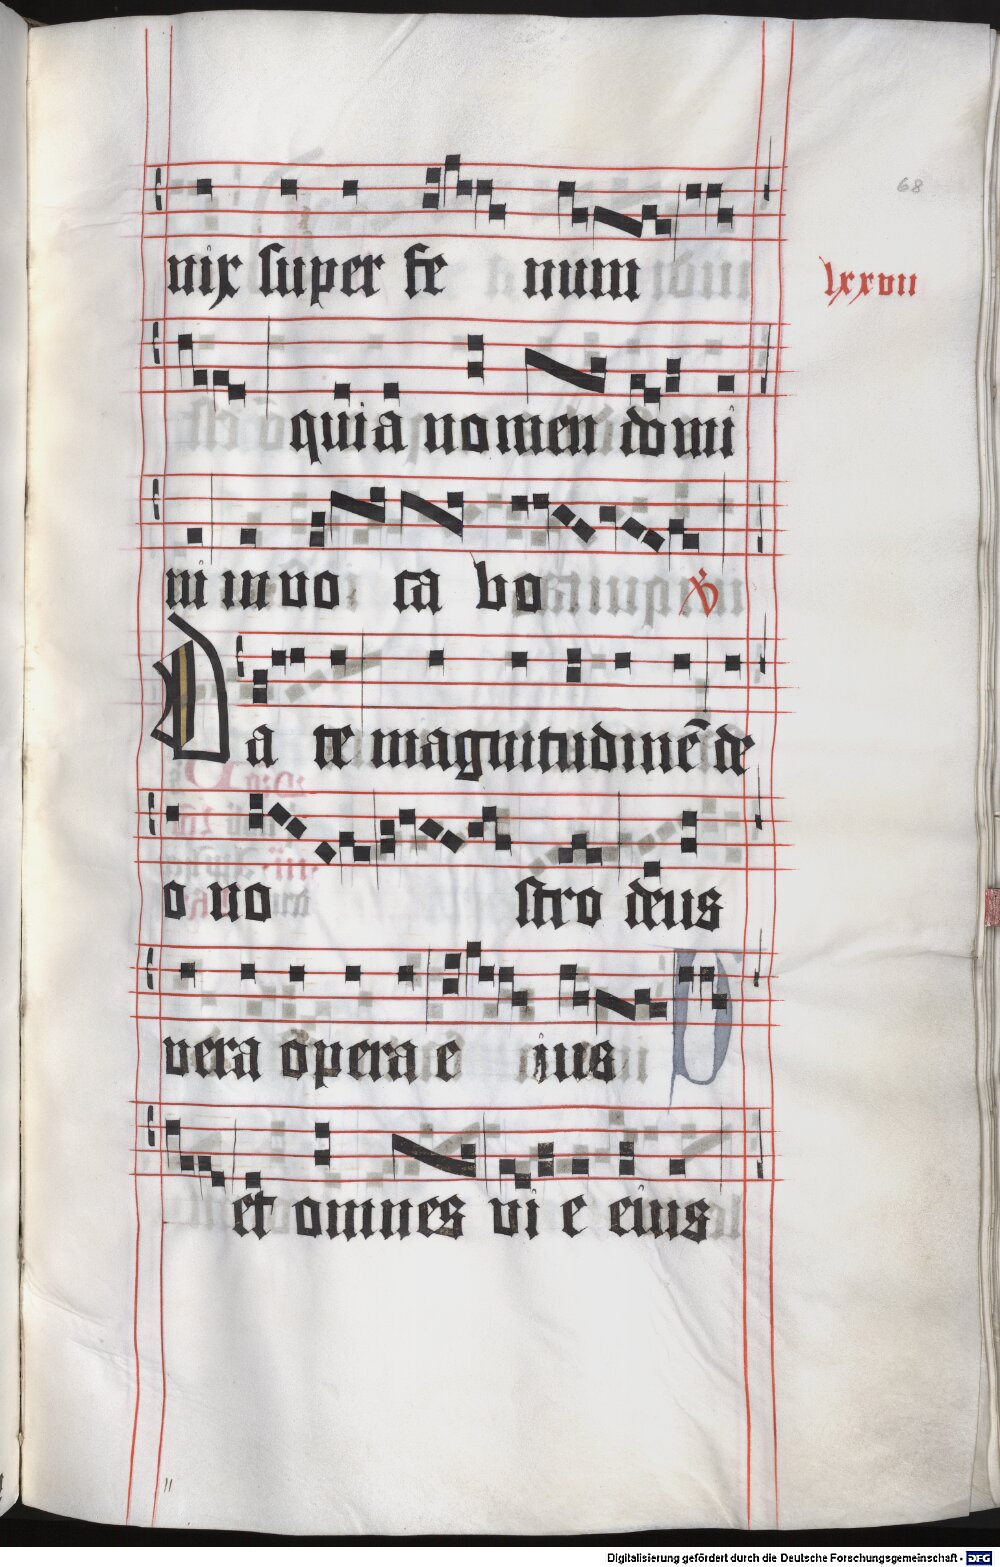 68
nix super fe num
lxxvii
quia nomen domi
ni invo ca bo ℣
Da te magnitudinē de
o no stro deus
vera opera e ius
et omnes vi e eius
Digitalisierung gefördert durch die Deutsche Forschungsgemeinschaft - DFG